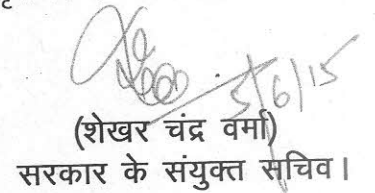 5/6/15
(शेखर चंद्र वर्मा)
सरकार के संयुक्त सचिव।